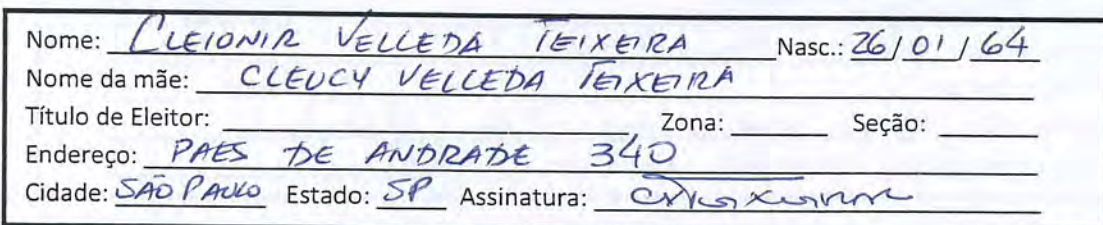 Nome: CLEIONIR VELLEDA TEIXEIRA Nasc.: 26/01/64
Nome da mãe: CLEUCY VELLEDA TEIXEIRA
Título de Eleitor: Zona: Seção:
Endereço: PAES DE ANDRADE 340
Cidade: SÃO PAULO Estado: SP Assinatura: